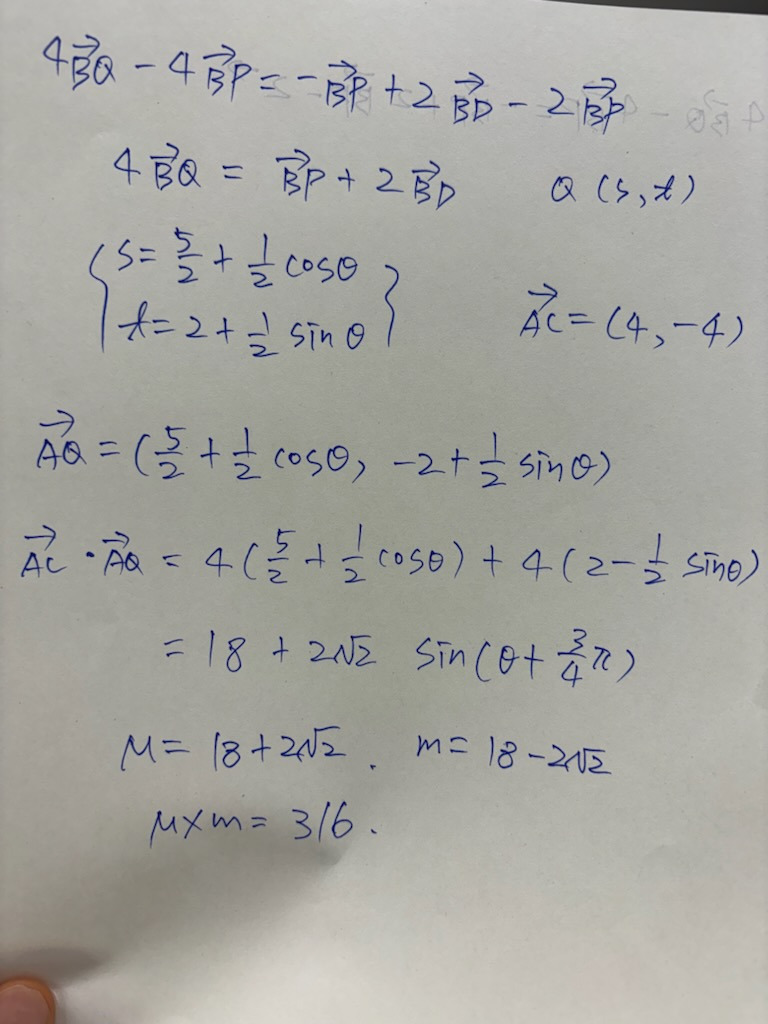 4\vec{BQ} - 4\vec{BP} = -\vec{BP} + 2\vec{BD} - 2\vec{BP}
4\vec{BQ} = \vec{BP} + 2\vec{BD}   Q (s, t)
{ s = \frac{5}{2} + \frac{1}{2} cosθ
t = 2 + \frac{1}{2} sinθ }   \vec{AC} = (4, -4)
\vec{AQ} = (\frac{5}{2} + \frac{1}{2} cosθ, -2 + \frac{1}{2} sinθ)
\vec{AC} · \vec{AQ} = 4(\frac{5}{2} + \frac{1}{2} cosθ) + 4(2 - \frac{1}{2} sinθ)
= 18 + 2√2 sin(θ + \frac{3}{4}π)
M = 18 + 2√2 . m = 18 - 2√2
M × m = 316.